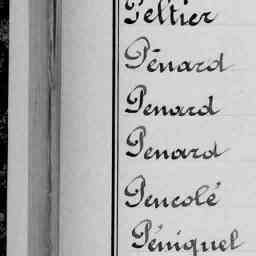 Peltier
Pénard
Penard
Penard
Pencolé
Péniguel